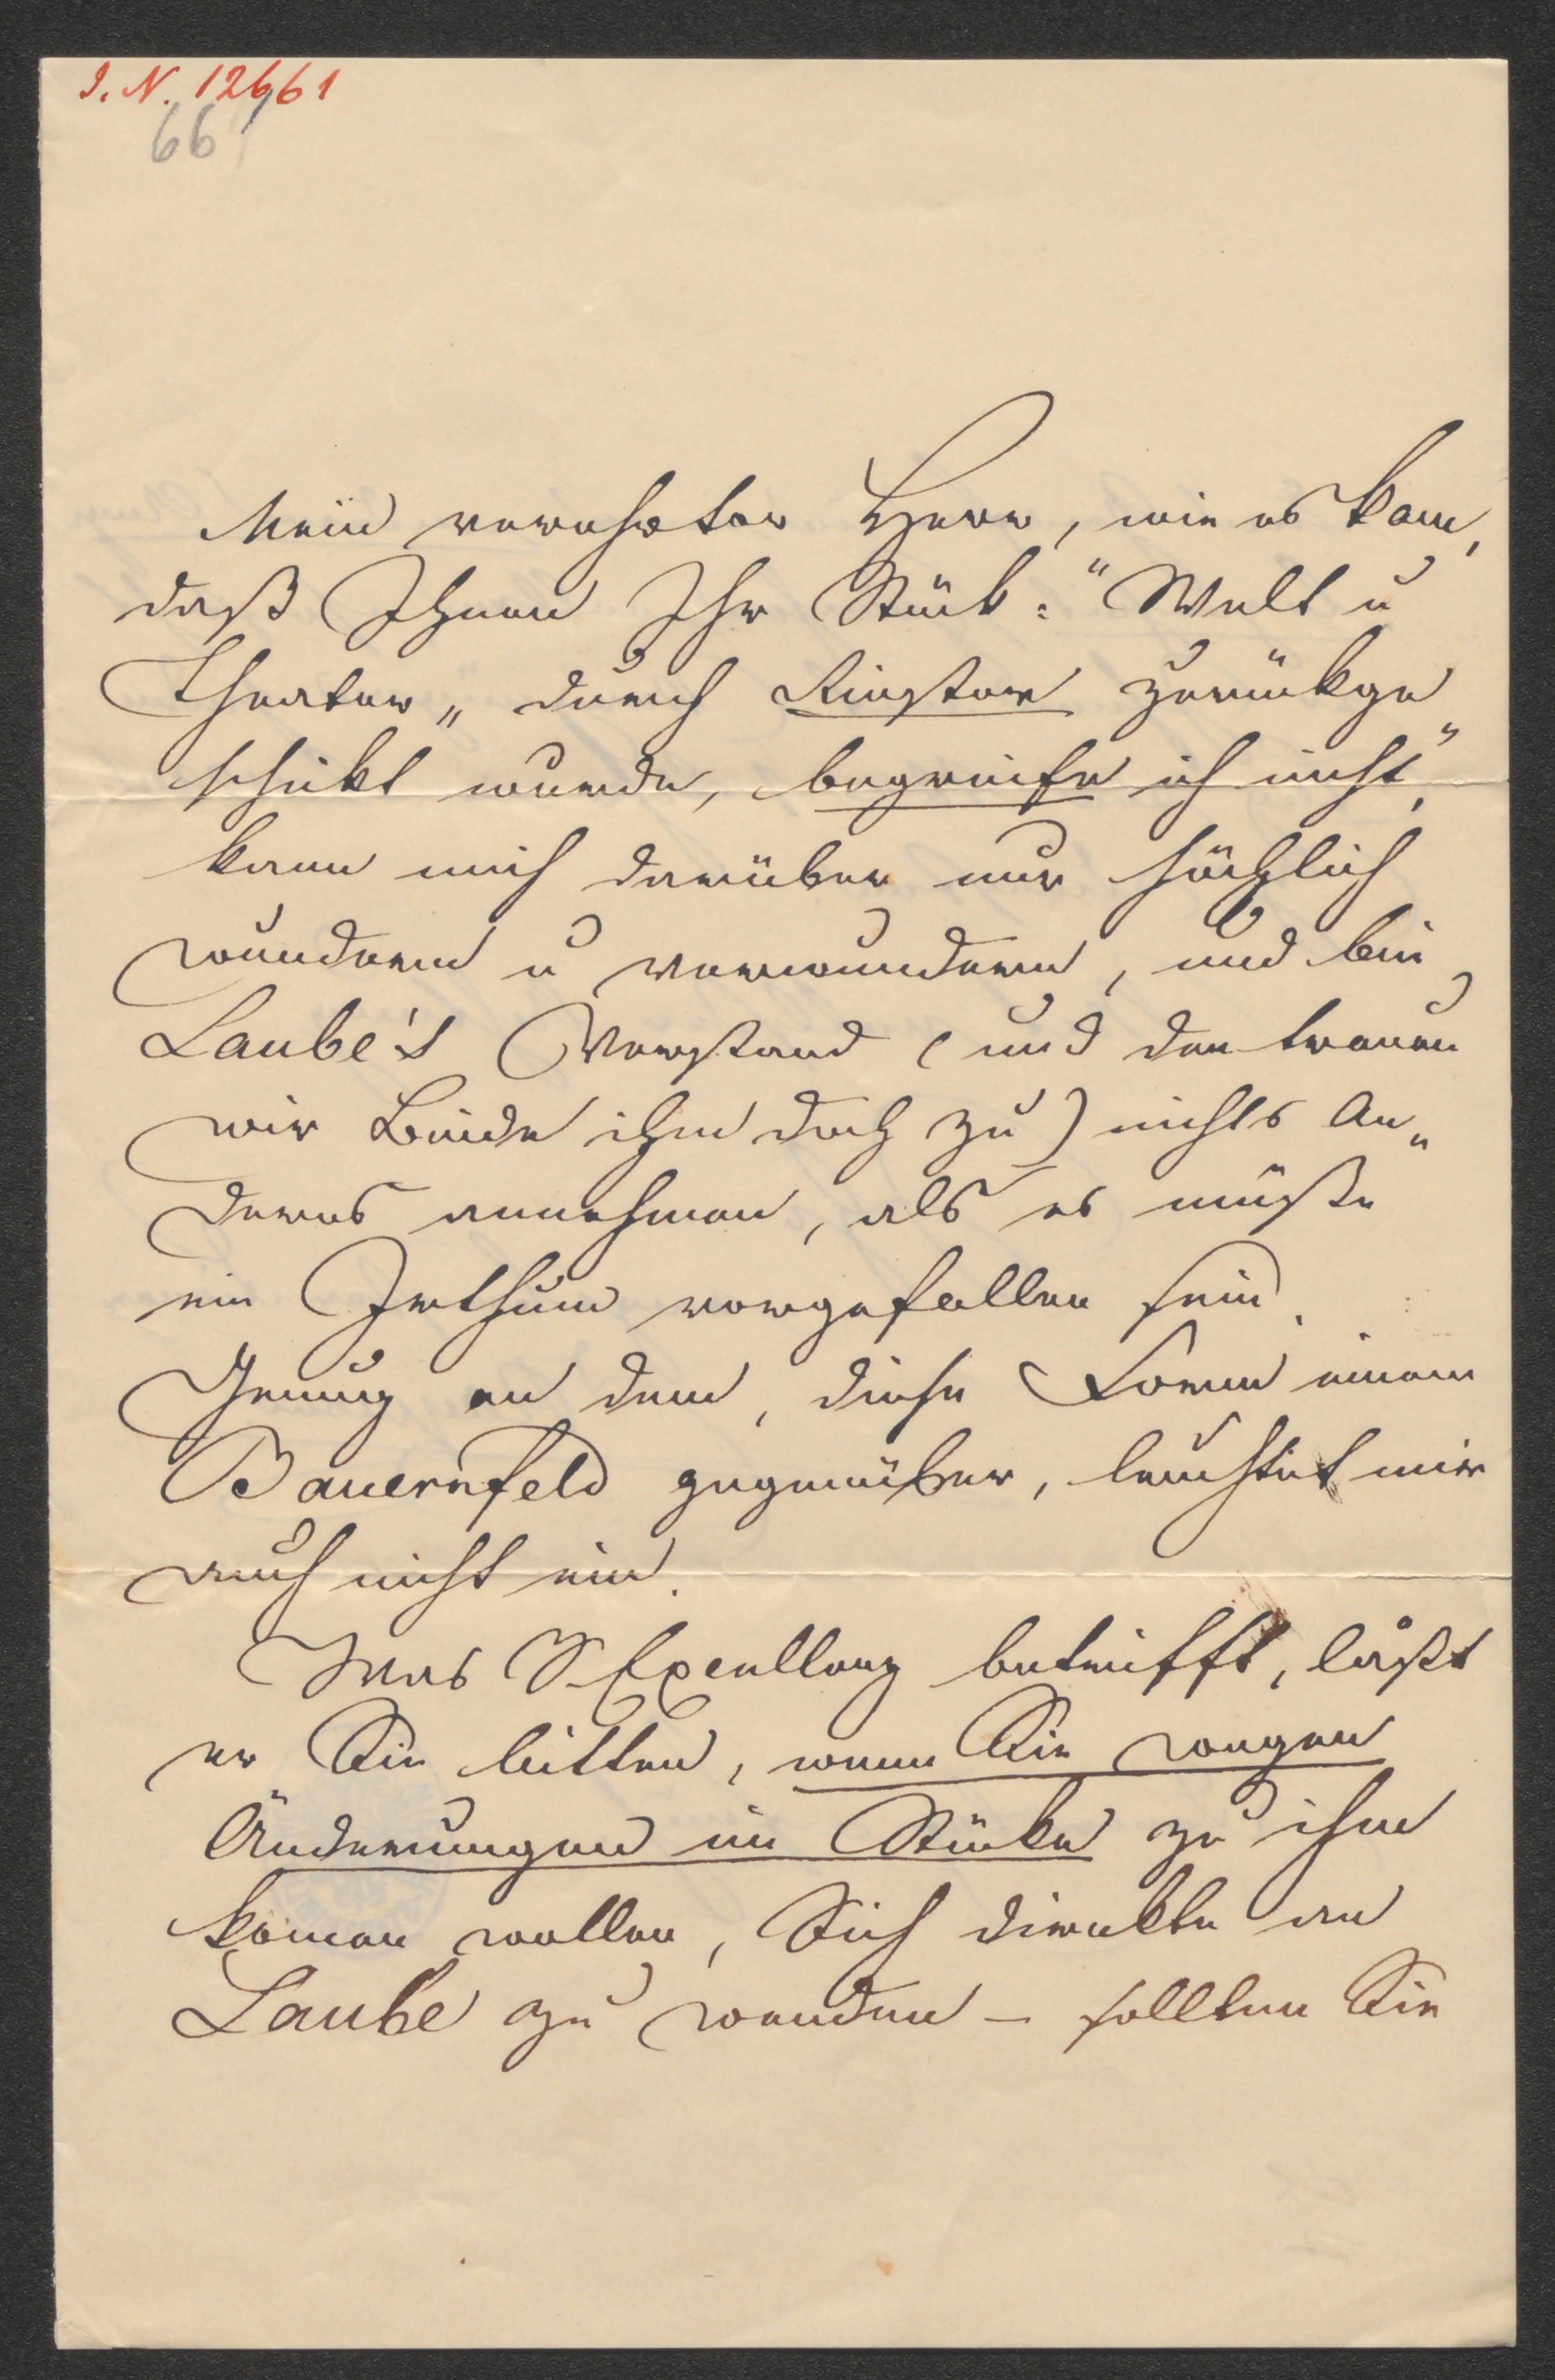 I. N. 12661
66
Mein verehrter Herr, wie es kam,
daß Ihnen Ihr Stück: "Welt u
Theater" durch Kirstein zurückge
schickt wurde, begreife ich nicht",
kann mich darüber nur höchlich
wundern u verwundern, und bei
Laube's Verstand (und den trauen
wir Beide ihm doch zu) nichts An„
deres annehmen, als es müßte
ein Irrthum vorgefallen sein.
Genug an dem, diese Form einem
Bauernfeld gegenüber, leuchtet mir
auch nicht ein.
Was S. Excellenz betrifft, läßt
er Sie bitten, wenn Sie wegen
Änderungen im Stücke zu ihm
komen wollen, Sich direkte an
Laube zu wenden – sollten Sie